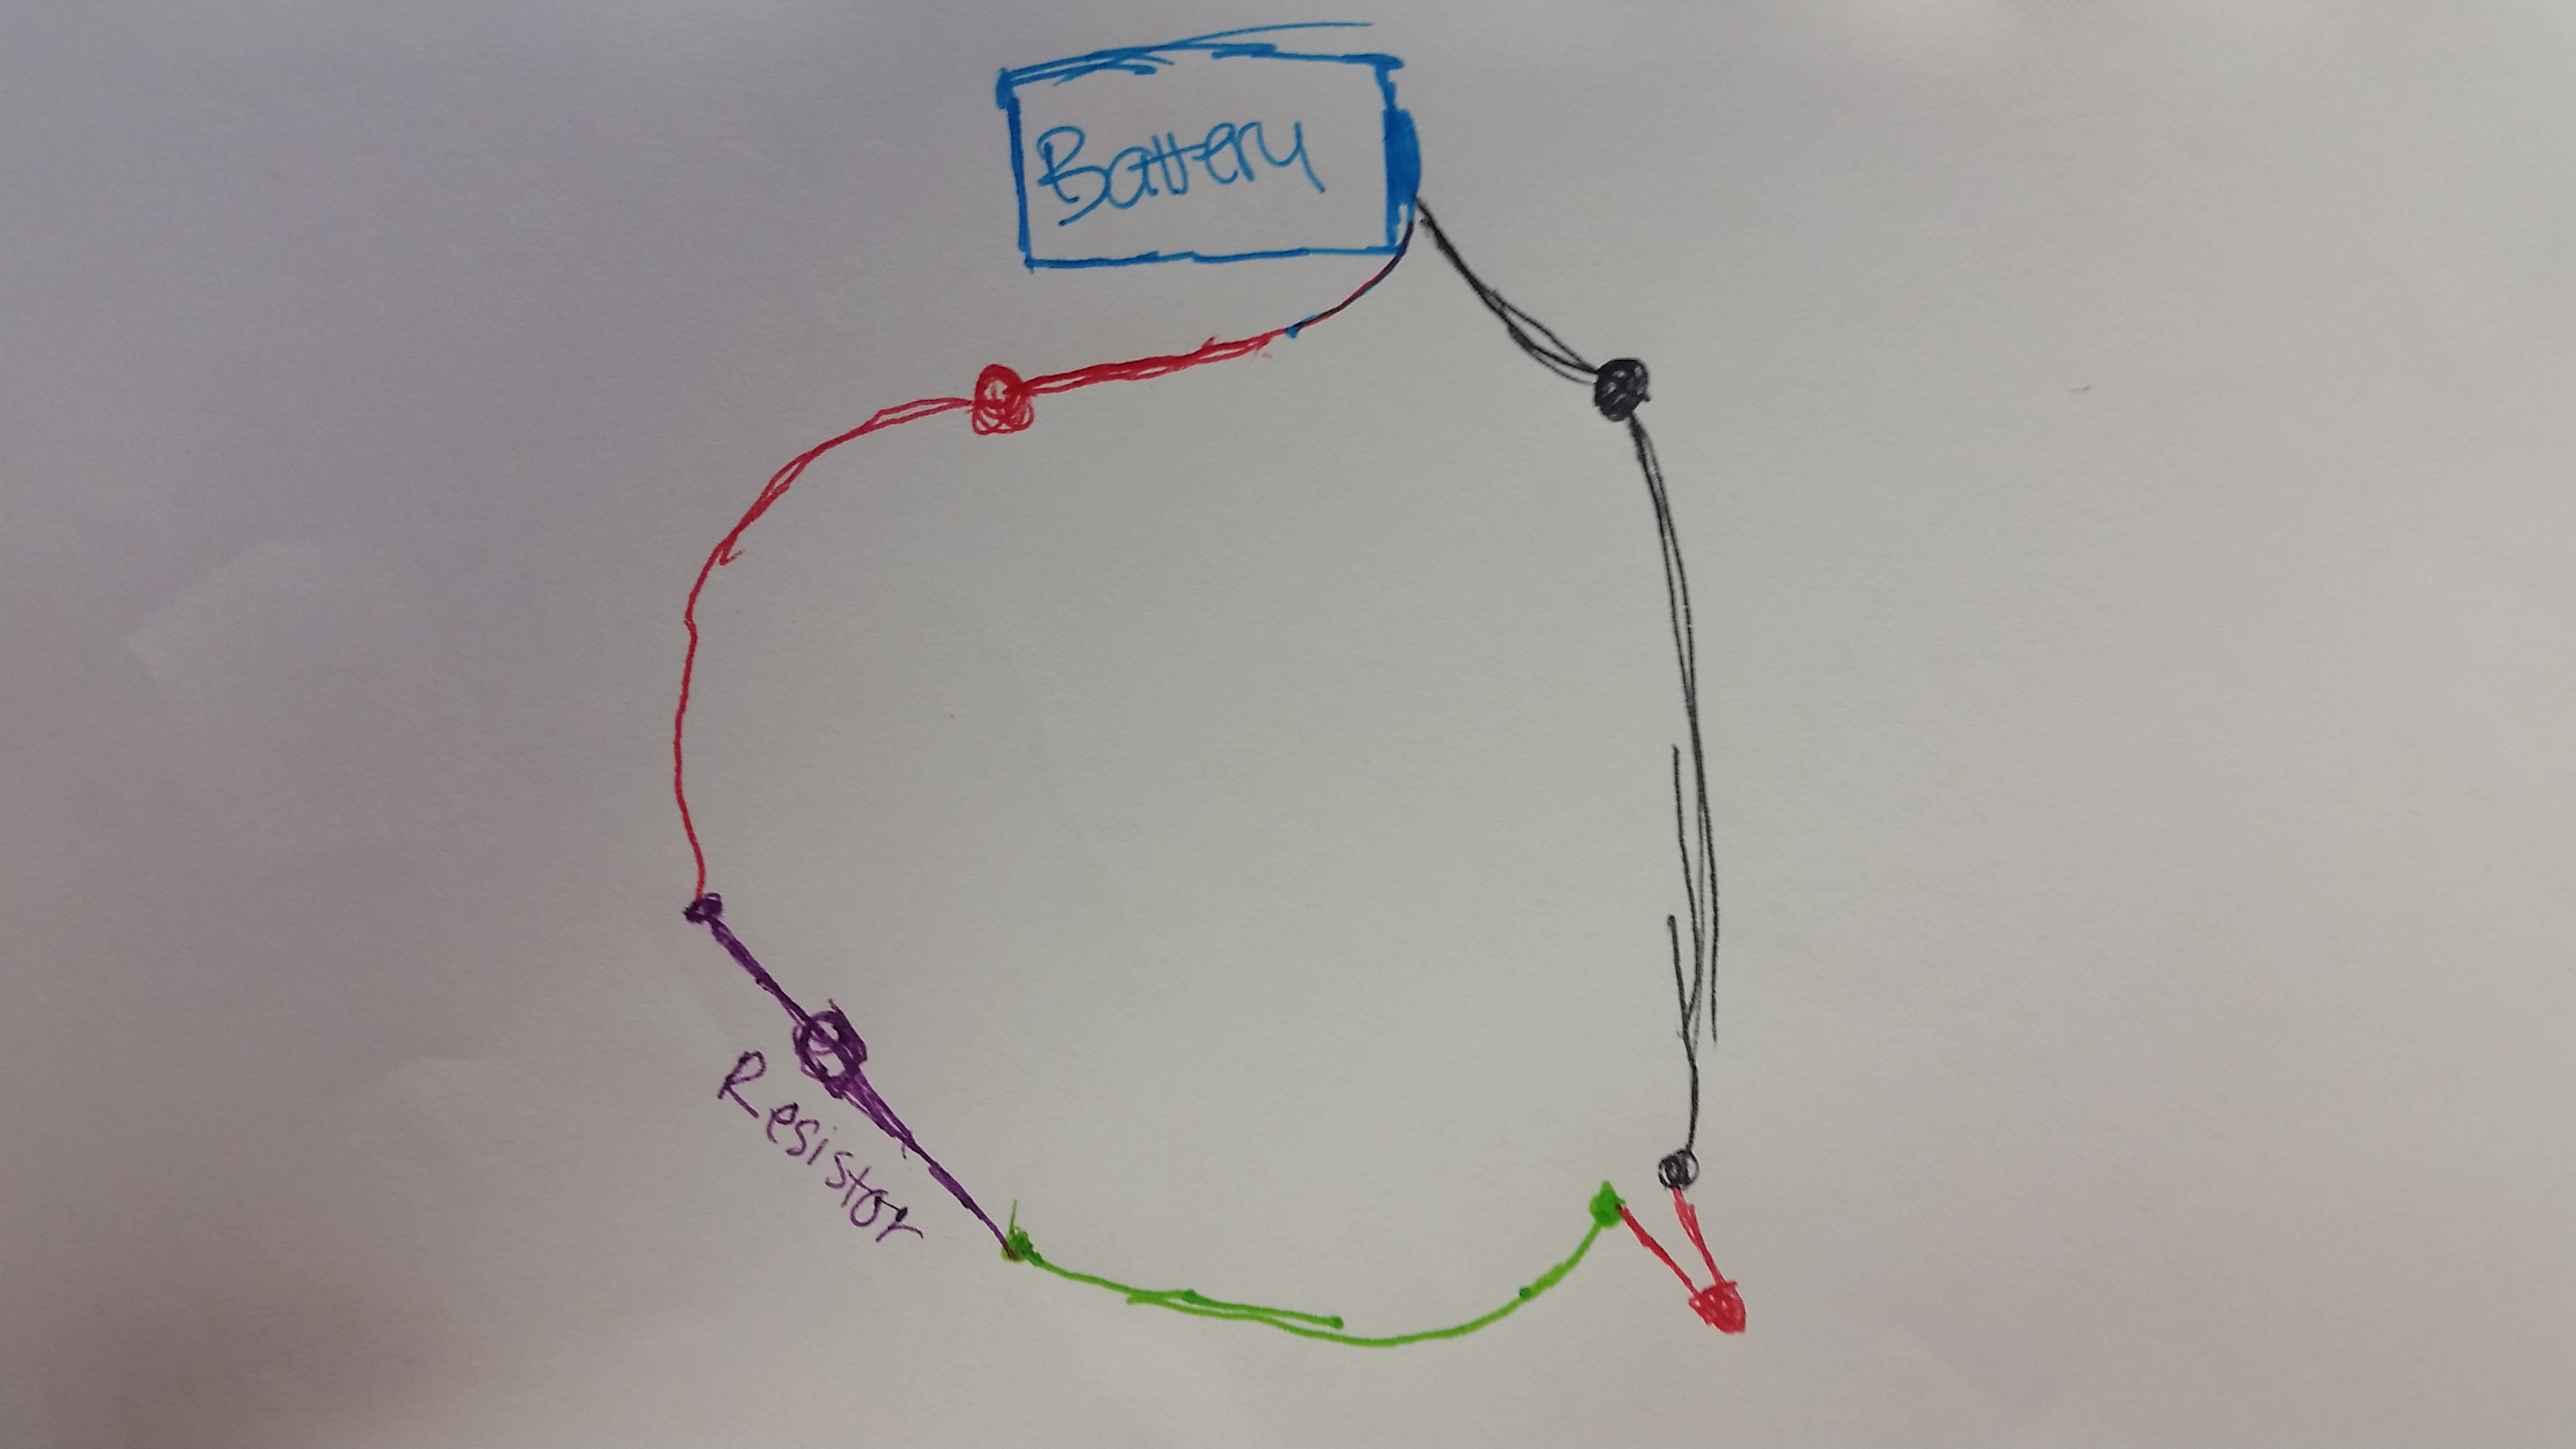 Battery
Resistor